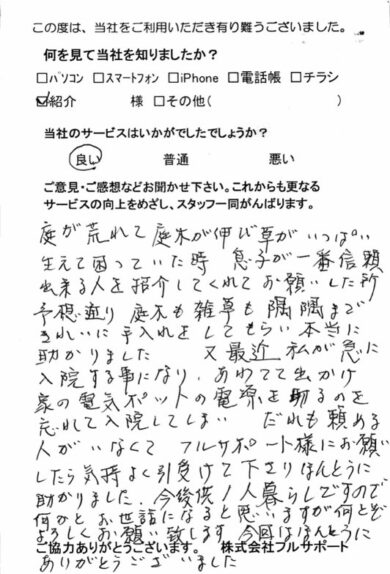 この度は、当社をご利用いただき有り難うございました。
何を見て当社を知りましたか？
□パソコン □スマートフォン □iPhone □電話帳 □チラシ
☑紹介 様 □その他( )
当社のサービスはいかがでしたでしょうか？
良い 普通 悪い
ご意見・ご感想などお聞かせ下さい。これからも更なる
サービスの向上をめざし、スタッフ一同がんばります。
庭が荒れて庭木が伸び草がいっぱい
生えて困っていた時 息子が一番信頼
出来る人を紹介してくれてお願いした所
予想通り 庭木も雑草も隅隅まで
きれいに手入れをしてもらい本当に
助かりました 又最近私が急に
入院する事になり、あわてて出かけ
家の電気ポットの電源を切るのを
忘れて入院してしまい だれも頼める
人がいなくて フルサポート様にお願い
したら気持よく引受けて下さりほんとうに
助かりました。今後供1人暮らしですので
何かとお世話になると思いますが何とぞ
よろしくお願い致します 今回はほんとうに
ご協力ありがとうございます。 株式会社フルサポート
ありがとうございました